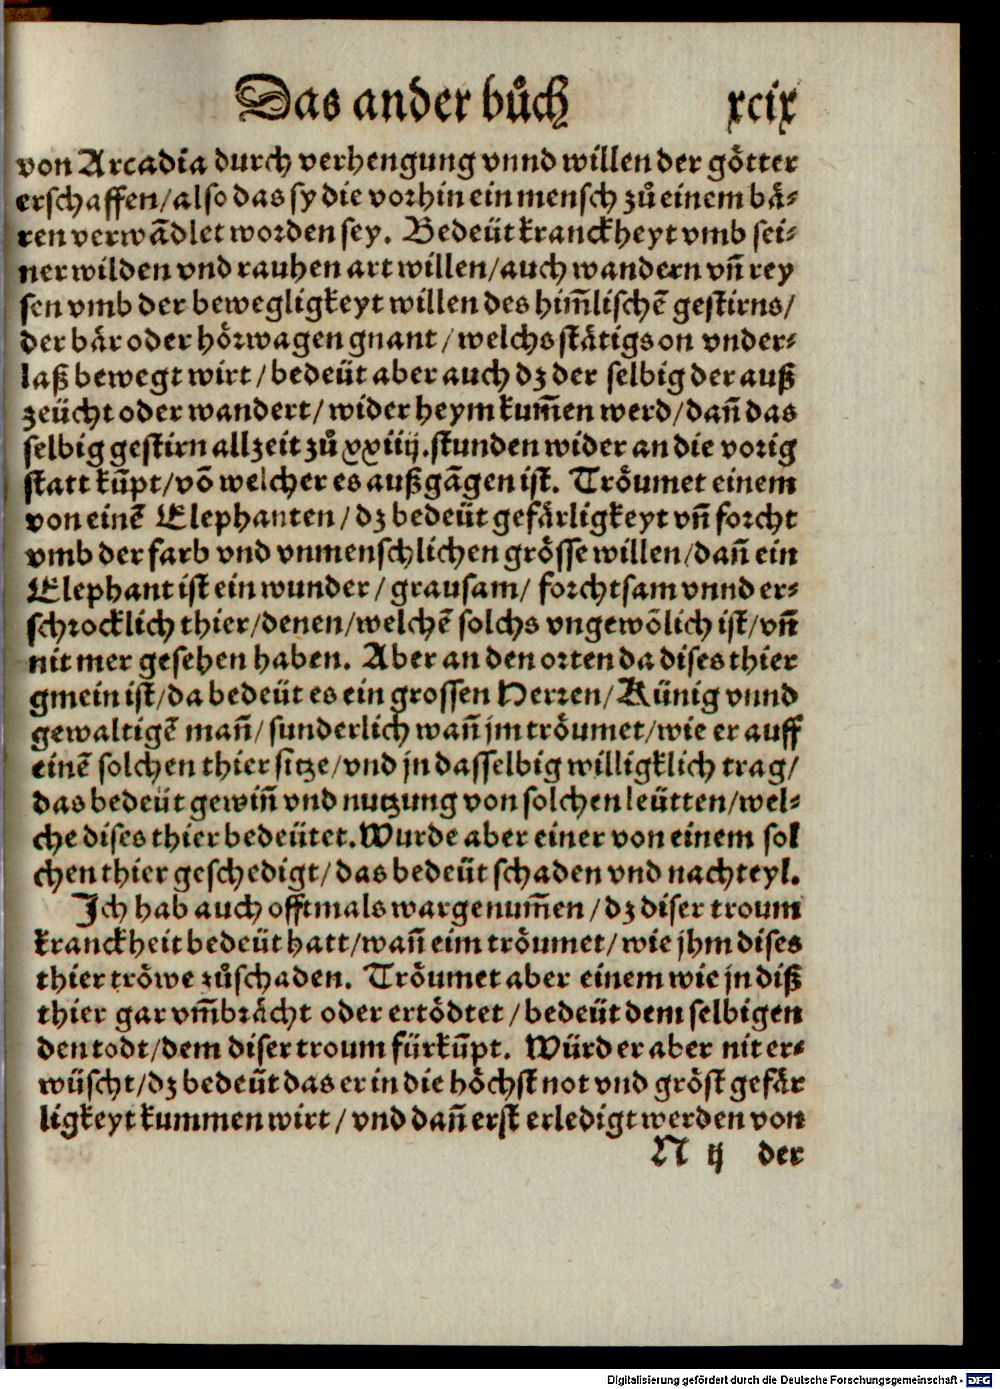 Das ander bůch xcix
von Arcadia durch verhengung vnnd willen der götter
erschaffen/also das sy die vorhin ein mensch zů einem bä⸗
ren verwādlet worden sey. Bedeüt kranckheyt vmb sei⸗
ner wilden vnd rauhen art willen/auch wandern vñ rey
sen vmb der bewegligkeyt willen des him̃lischē gestirns/
der bär oder hörwagen gnant/welchs stätigs on vnder⸗
laß bewegt wirt/bedeüt aber auch dz der selbig der auß
zeücht oder wandert/wider heym kum̃en werd/dañ das
selbig gestirn allzeit zů xxiiij.stunden wider an die vorig
statt kũpt/vō welcher es außgāgen ist. Tröumet einem
von einē Elephanten/dz bedeüt gefärligkeyt vñ forcht
vmb der farb vnd vnmenschlichen grösse willen/dañ ein
Elephant ist ein wunder/grausam/forchtsam vnnd er⸗
schrocklich thier/denen/welchē solchs vngewōlich ist/vñ
nit mer gesehen haben. Aber an den orten da dises thier
gmein ist/da bedeüt es ein grossen Herren/Künig vnnd
gewaltigē mañ/sunderlich wañ jm tröumet/wie er auff
einē solchen thier sitze/vnd jn dasselbig willigklich trag/
das bedeüt gewiñ vnd nutzung von solchen leütten/wel⸗
che dises thier bedeütet. Wurde aber einer von einem sol
chen thier geschedigt/das bedeüt schaden vnd nachteyl.
Ich hab auch offtmals wargenum̃en/dz diser troum
kranckheit bedeüt hatt/wañ eim tröumet/wie jhm dises
thier tröwe zůschaden. Tröumet aber einem wie jn diß
thier gar vm̃brächt oder ertödtet/bedeüt dem selbigen
den todt/dem diser troum fürkũpt. Würd er aber nit er⸗
wüscht/dz bedeüt das er in die höchst not vnd gröst gefär
ligkeyt kummen wirt/vnd dañ erst erledigt werden von
N ij der
Digitalisierung gefördert durch die Deutsche Forschungsgemeinschaft - DFG